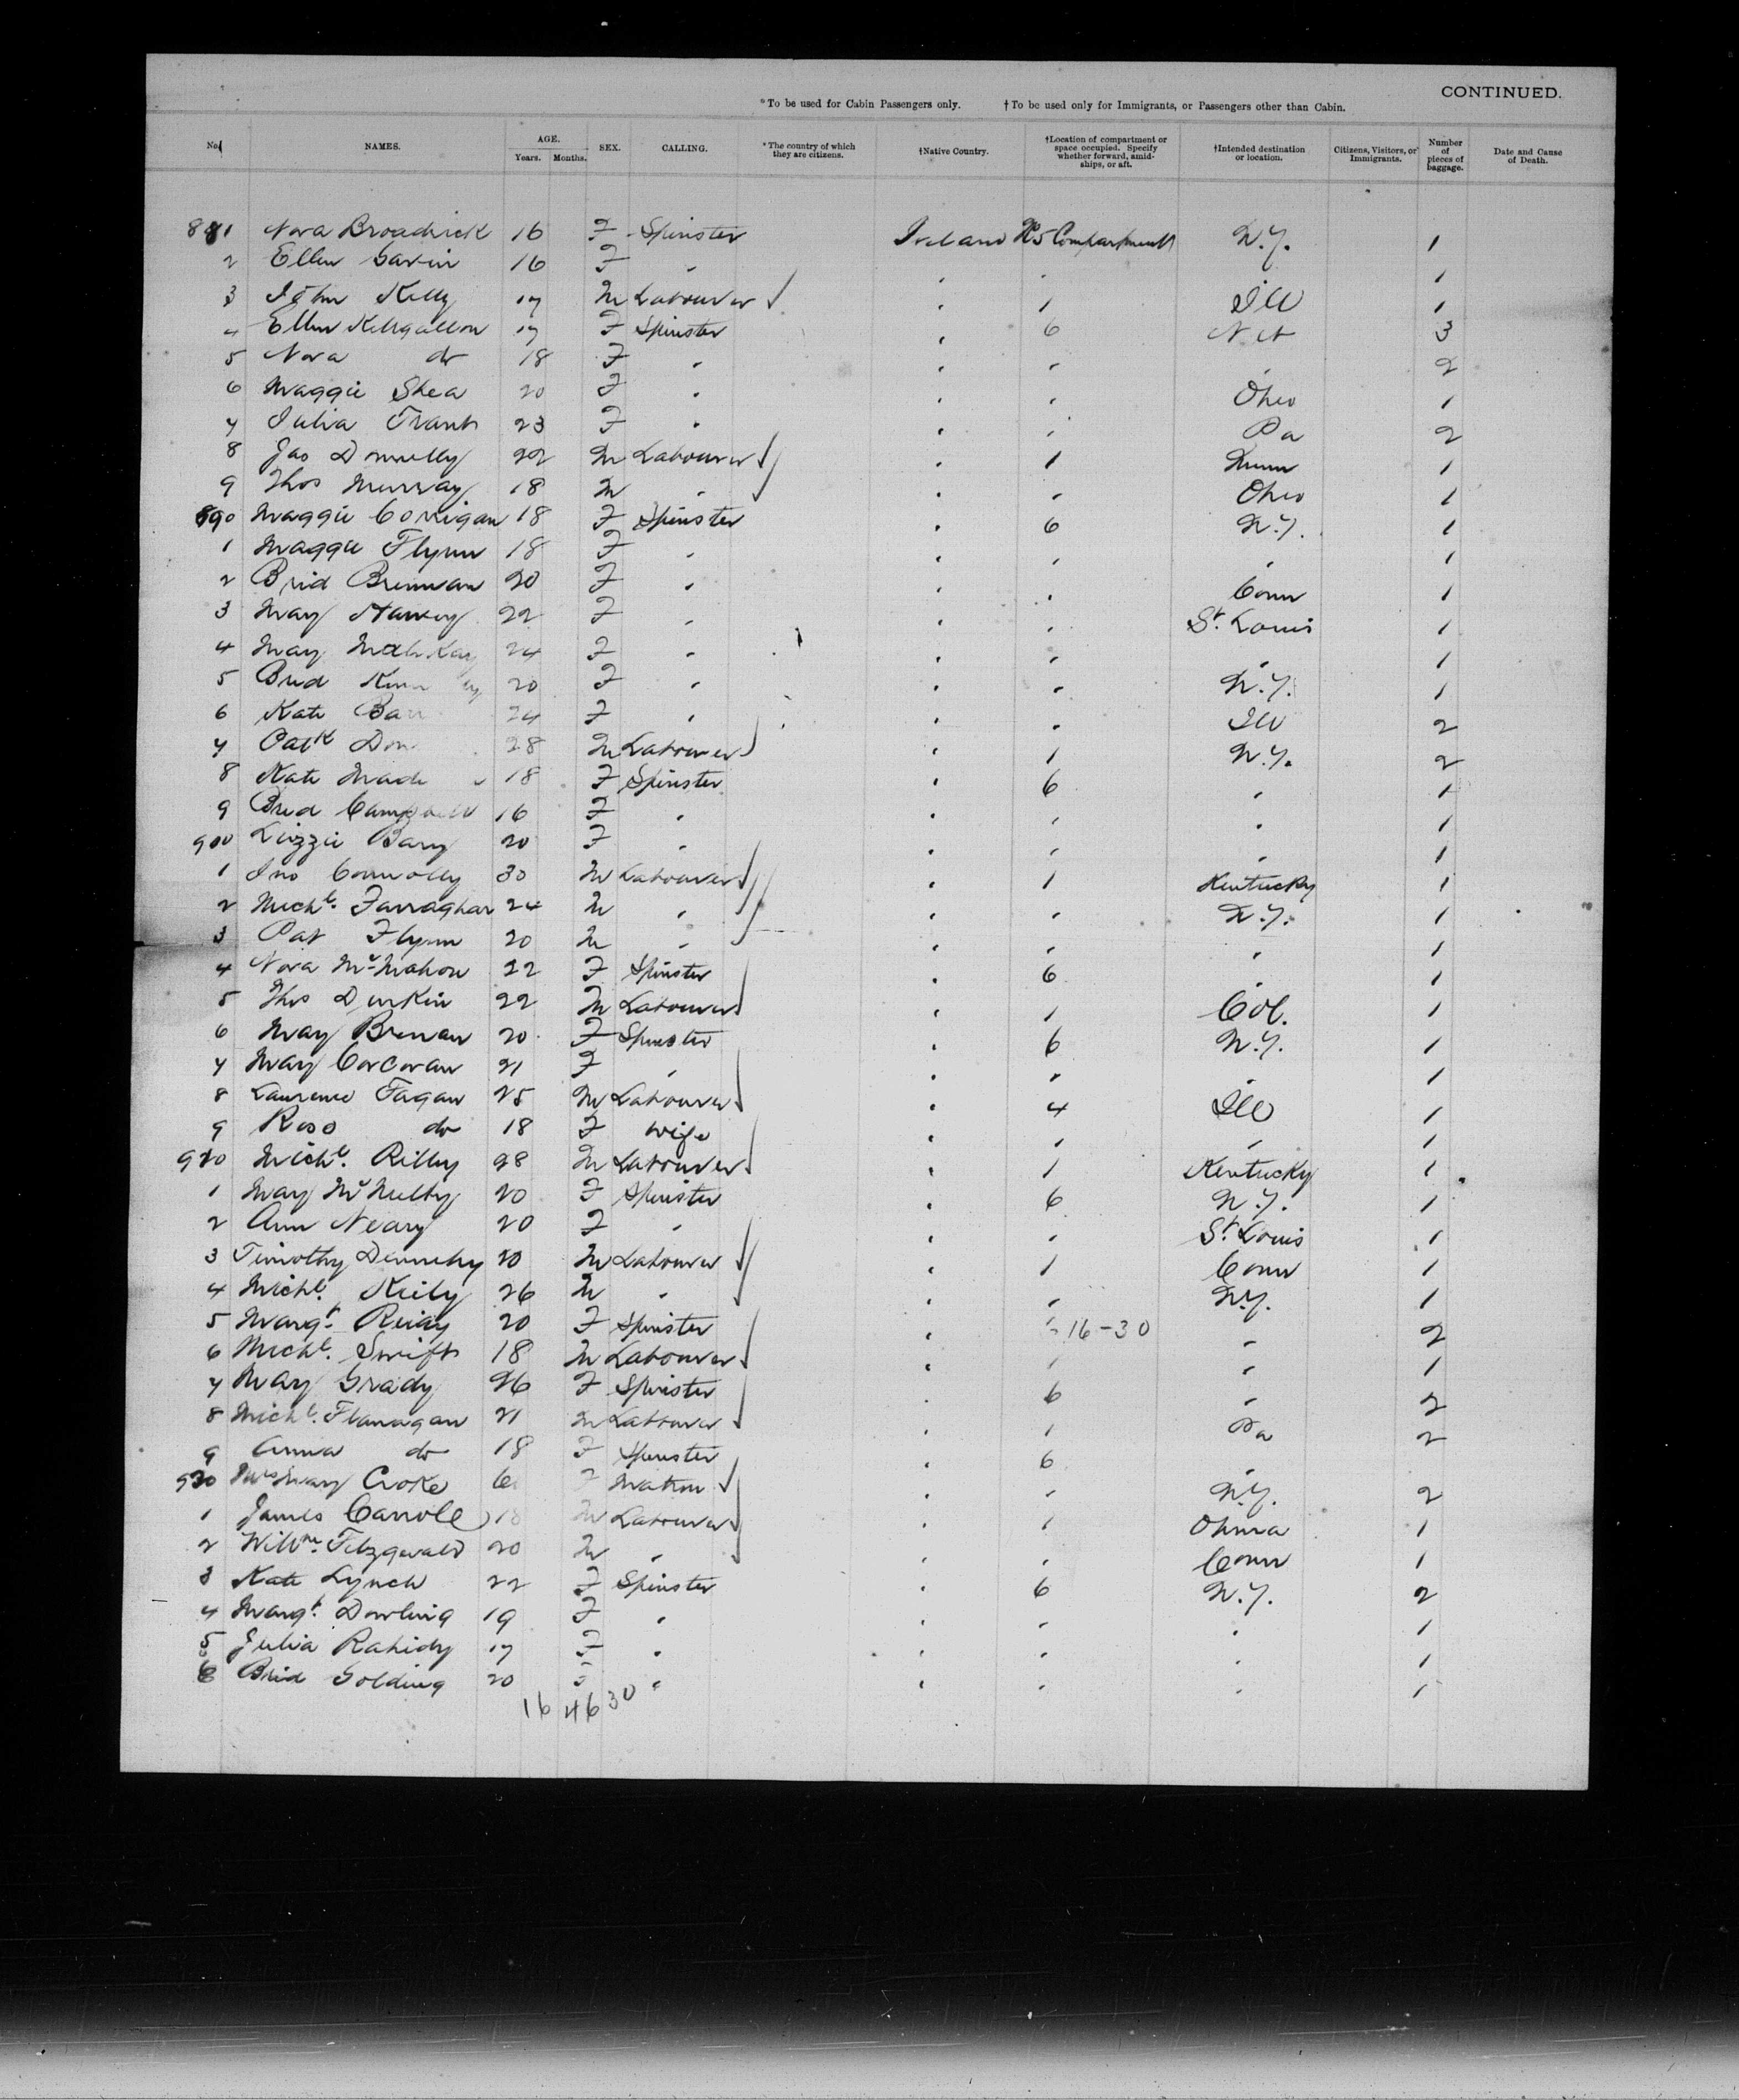 CONTINUED.
*To be used for Cabin Passengers only. †To be used only for Immigrants, or Passengers other than Cabin.
No. NAMES. AGE. Years. Months. SEX. CALLING. *The country of which they are citizens. †Native Country. †Location of compartment or space occupied. Specify whether forward, amidships, or aft. †Intended destination or location. Citizens, Visitors, or Immigrants. Number of pieces of baggage. Date and Cause of Death.
881 Nora Broadrick 16 F Spinster Ireland Compartment N.Y. 1
2 Ellen Gavin 16 F " " " " 1
3 John Kelly 17 M Labourer " 1 Ill 1
4 Ellen Killgallon 17 F Spinster " 6 3
5 Nora do 18 F " " " " 2
6 Maggie Shea 20 F " " " Ohio 1
7 Julia Trant 23 F " " " Pa 2
8 Jas Donnelly 22 M Labourer " 1 1
9 Thos Murray 18 M " " " Ohio 1
890 Maggie Corrigan 18 F Spinster " 6 N.Y. 1
1 Maggie Flynn 18 F " " " " 1
2 Brid Brennan 20 F " " " Conn 1
3 May 22 F " " " St. Louis 1
4 May 24 F " " " " 1
5 Brid 20 F " " " N.Y. 1
6 Kate 24 F " " " Ill 2
7 Patk 28 M Labourer " 1 N.Y. 2
8 Kate 18 F Spinster " 6 " 1
9 Brid Campbell 16 F " " " " 1
900 Lizzie Barry 20 F " " " " 1
1 Jno Connolly 30 M Labourer " 1 Kentucky 1
2 Michl. Farraghar 24 M " " " N.Y. 1
3 Pat Flynn 20 M " " " " 1
4 Nora McMahon 22 F Spinster " 6 " 1
5 Thos Durkin 22 M Labourer " 1 Col. 1
6 May Brenan 20 F Spinster " 6 N.Y. 1
7 May Corcoran 21 F " " " " 1
8 Laurence Fagan 25 M Labourer " 4 Ill 1
9 Rose do 18 F Wife " " " 1
910 Michl. Rilly 28 M Labourer " 1 Kentucky 1
1 May McNulty 20 F Spinster " 6 N.Y. 1
2 Ann Neary 20 F " " " St. Louis 1
3 Timothy Dennehy 20 M Labourer " 1 Conn 1
4 Michl. Keily 26 M " " " N.Y. 1
5 Margt. Reidy 20 F Spinster " " 16-30 " 2
6 Michl. Swift 18 M Labourer " " " 1
7 May Grady 26 F Spinster " 6 " 2
8 Michl. Flanagan 21 M Labourer " 1 Pa 2
9 Anna do 18 F Spinster " 6 "
920 Mrs Mary Croke F Matron " " N.Y. 2
1 James Carroll 18 M Labourer " 1 1
2 Willm. Fitzgerald 20 M " " " Conn 1
3 Kate Lynch 22 F Spinster " 6 N.Y. 2
4 Margt. Dowling 19 F " " " " 1
5 Julia Rahidy 17 F " " " " 1
6 Brid Golding 20 F " " " " 1
16 46 30